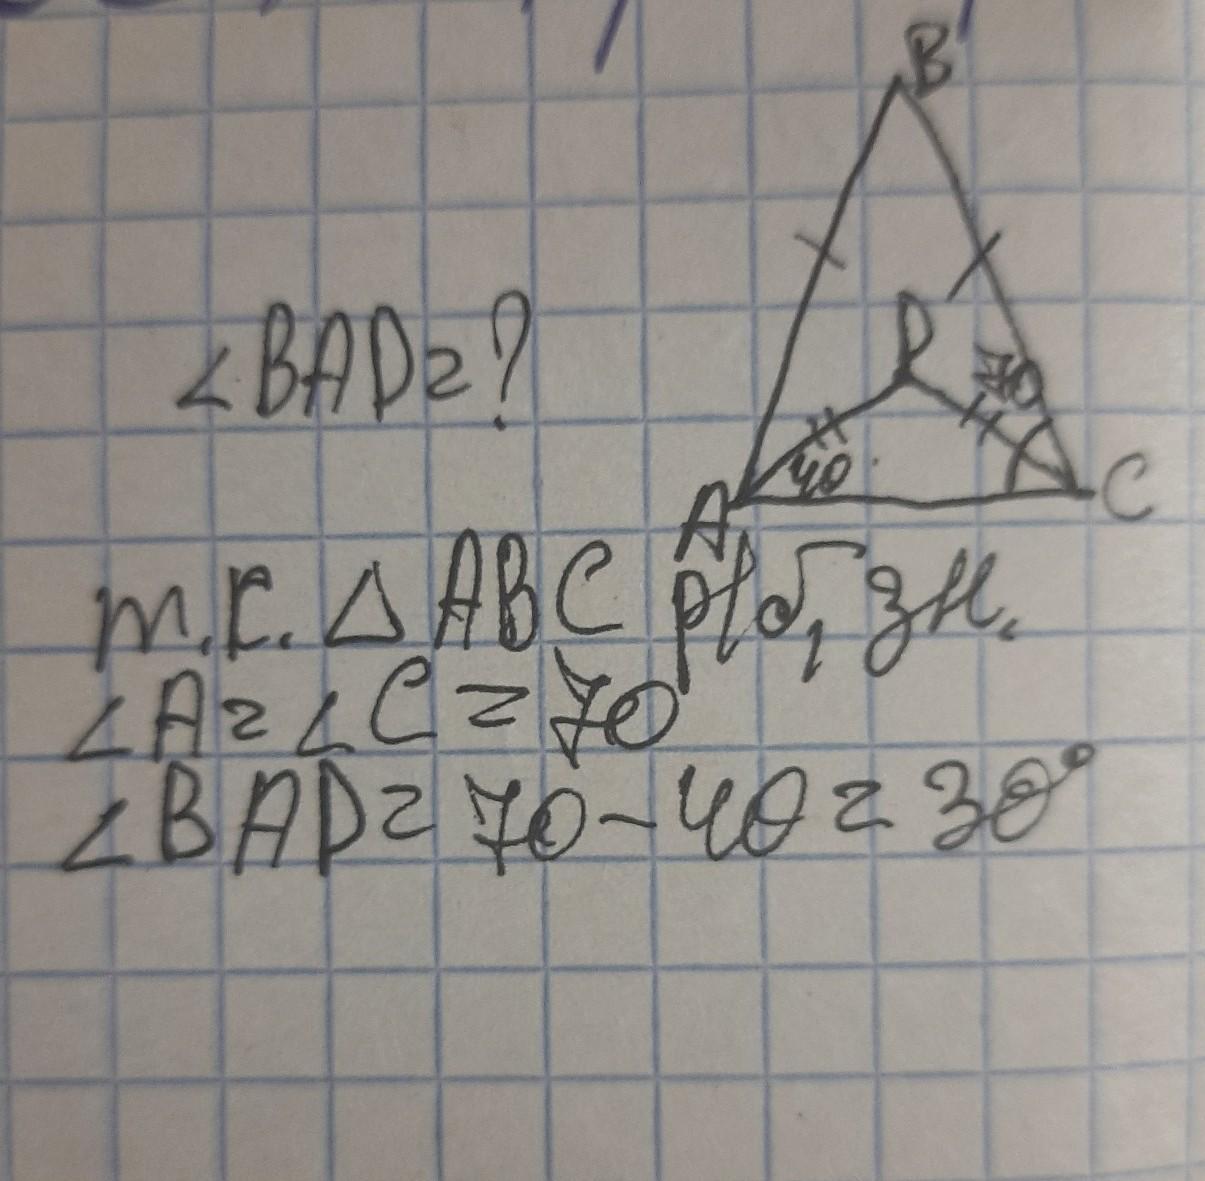 B
∠BAD=?
D
70
40
A
C
т.к. △ABC р/б, зн.
∠A=∠C=70
∠BAD=70-40=30°